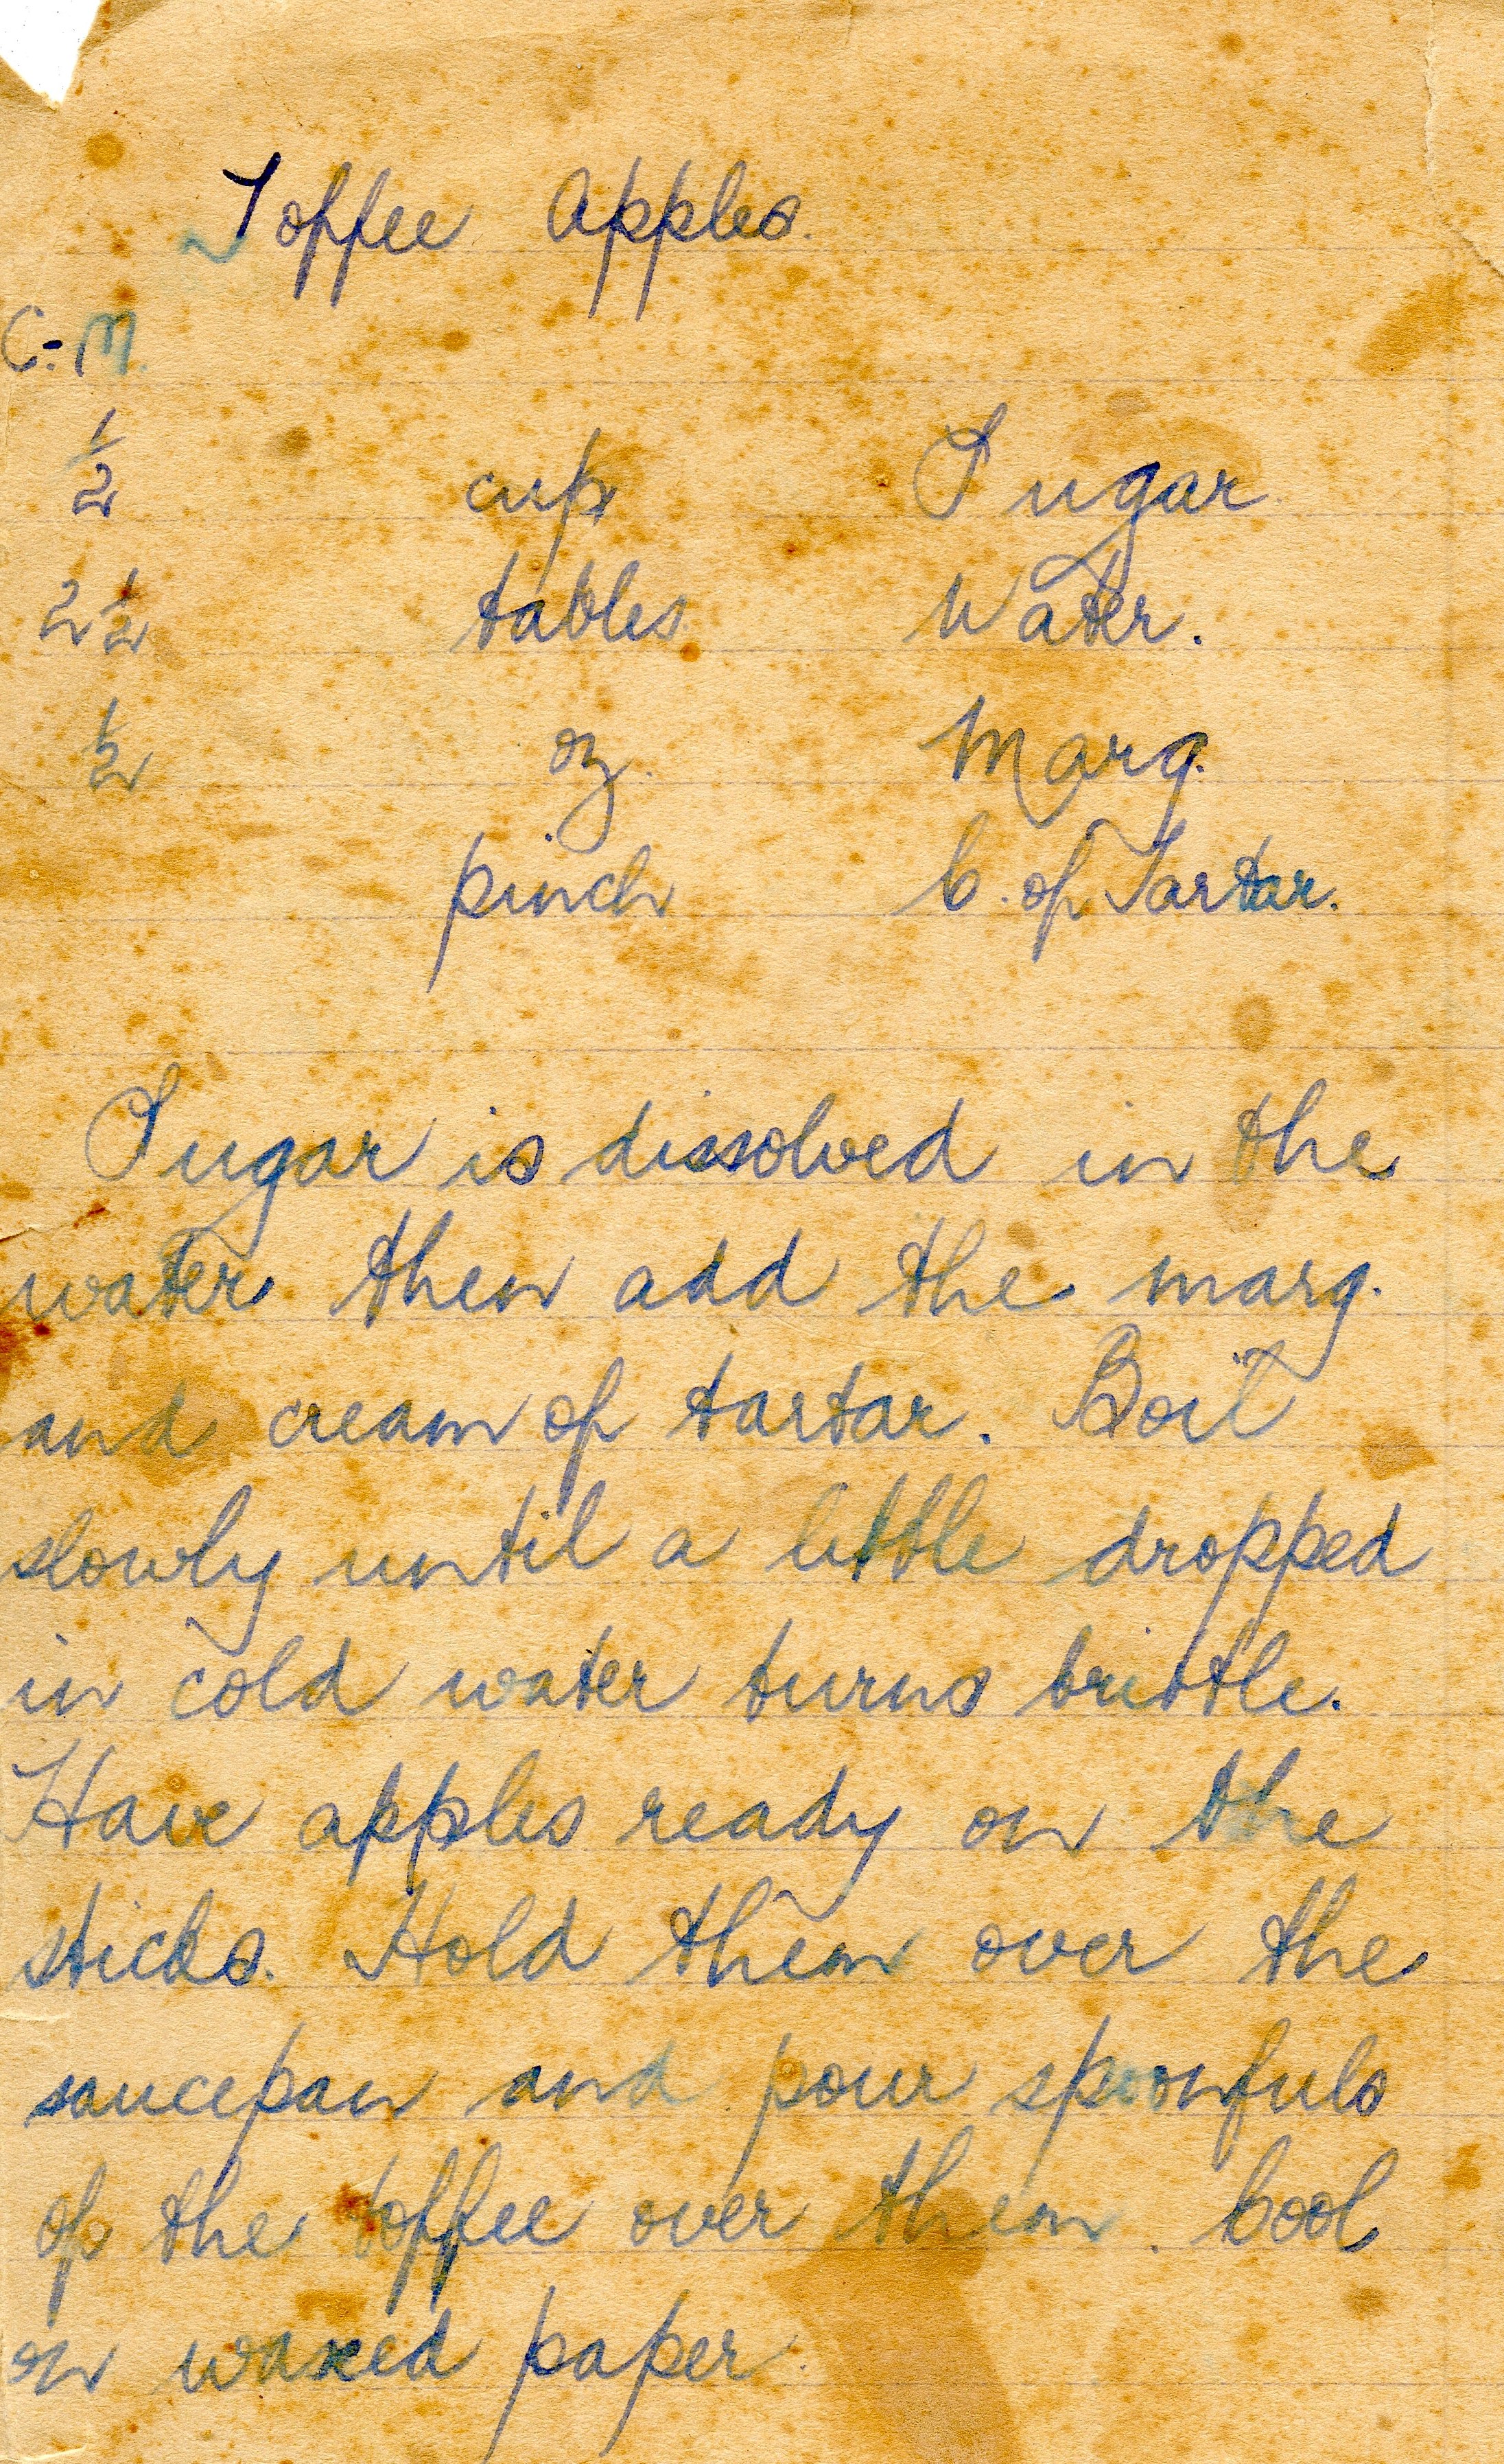 Toffee Apples.
C:- M.
1/2 cup Sugar
2 1/2 tables Water.
1/2 oz. Marg.
pinch C. of Tartar.
Sugar is dissolved in the
water then add the marg.
and cream of tartar. Boil
slowly until a little dropped
in cold water turns brittle.
Have apples ready on the
sticks. Hold them over the
saucepan and pour spoonfuls
of the toffee over them. Cool
on waxed paper.